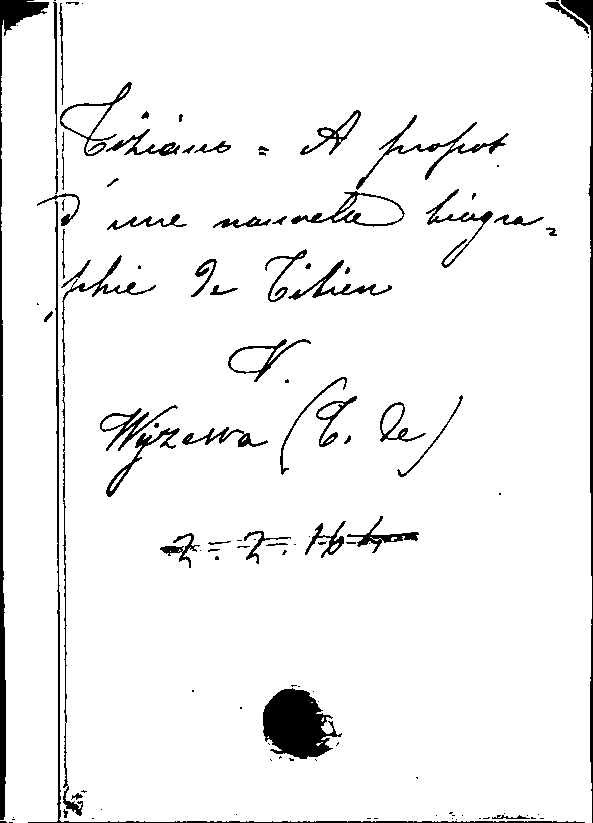 Tiziano = A propos
d'une nouvelle biogra=
phie de Titien
V.
Wyzewa (T. de)
2. 2. 164